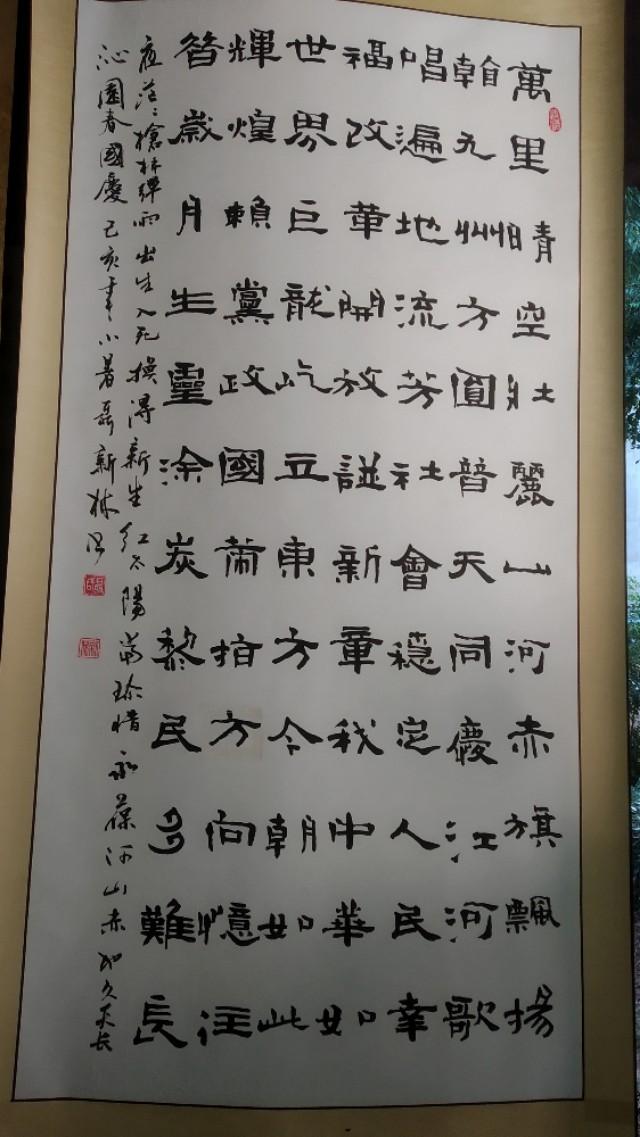 萬里晴空壯麗山河赤旗飄揚
看九州方圓普天同慶江河歌
唱遍地流芳社會穩定人民幸
福改革開放譜新章我中華如
世界巨龍屹立東方今朝如此
輝煌賴黨政國策指方向憶往
昔歲月生靈涂炭黎民多難長
夜茫茫槍林彈雨出生入死換得新生紅太陽當珍惜永葆河山赤地久天長
沁園春國慶 己亥年小暑聶新林書